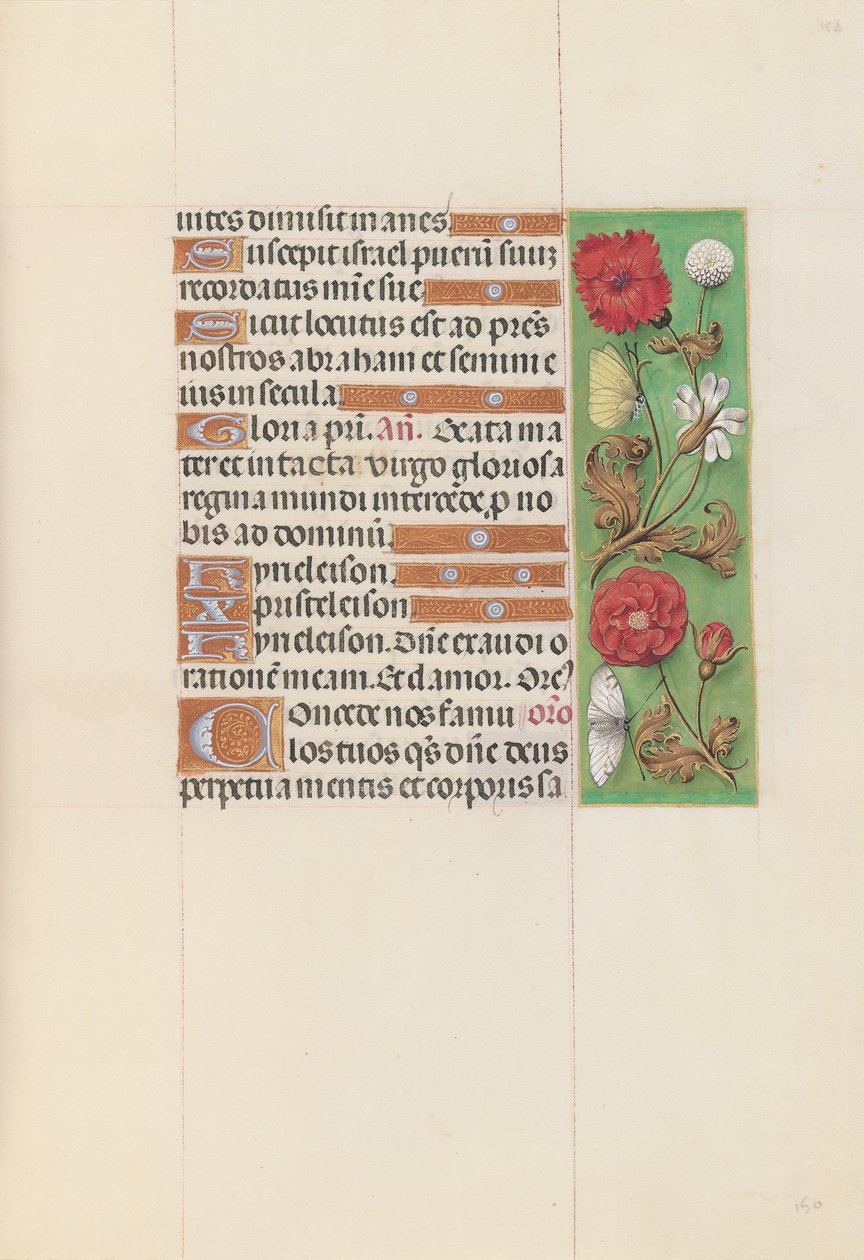 uites dimisit inanes.
Suscepit israel puerū suuȝ
recordatus mīe sue
Sicut locutus est ad pr̄es
nostros abraham et semini e
ius in secula
Gloria pr̄i. Añ. Beata ma
ter et intacta virgo gloriosa
regina mundi intercede p̱ no
bis ad dominū.
Kyrieleison.
Xpristeleison
Kyrieleison. Dñe exaudi o
rationē meam. Et clamor. Ore᷒
Concede nos famu oro
los tuos qs̄ dñe deus
perpetua mentis et corporis sa
150